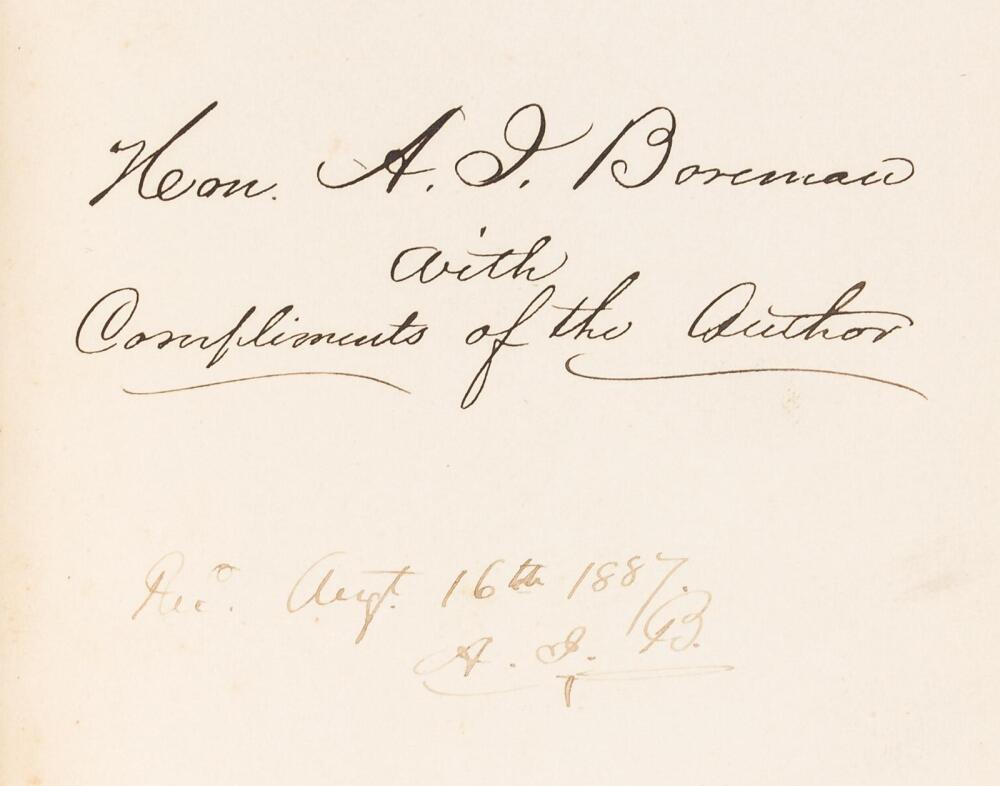 Hon. A. I. Boreman
with
Compliments of the Author
Recd. Augt. 16th 1887.
A. I. B.